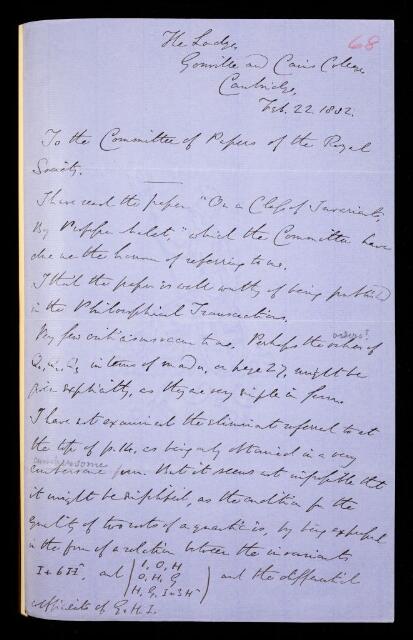 68
The Lodge,
Gonville and Caius College
Cambridge,
Feb. 22. 1882.
To the Committee of Papers of the Royal
Society.
I have read the paper "On a Class of Invariants,
By Professor Malet" which the Committee have
done me the honour of referring to me.
I think the paper is well worthy of being published
in the Philosophical Transactions.
Very few criticisms occur to me. Perhaps the values of
values?
in terms of and on page 27, might be
given explicitly, as they are very simple in form.
I have not examined the eliminant referred to at
the top of p. 14, as being only obtained in a very
cumbersome
cumbersome form. But it seems not improbable that
it might be simplified, as the condition for the
equality of two roots of a quartic is, by being expressed
in the form of a relation between the invariants
I + 6H², and ( 1, 0, H
0, H, G
H, G, I+3H² ) and the differential
coefficients of G. H. I.